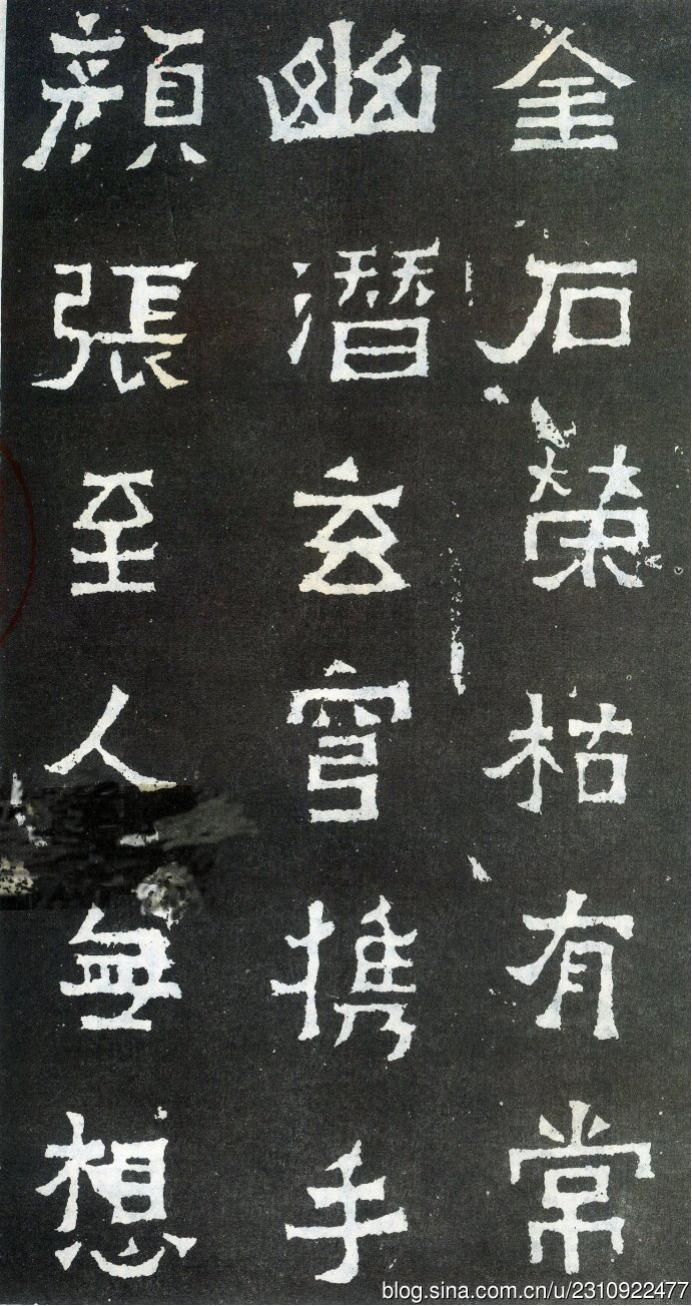 金石榮枯有常
幽潛玄穹携手
顏張至人無想
blog.sina.com.cn/u/2310922477